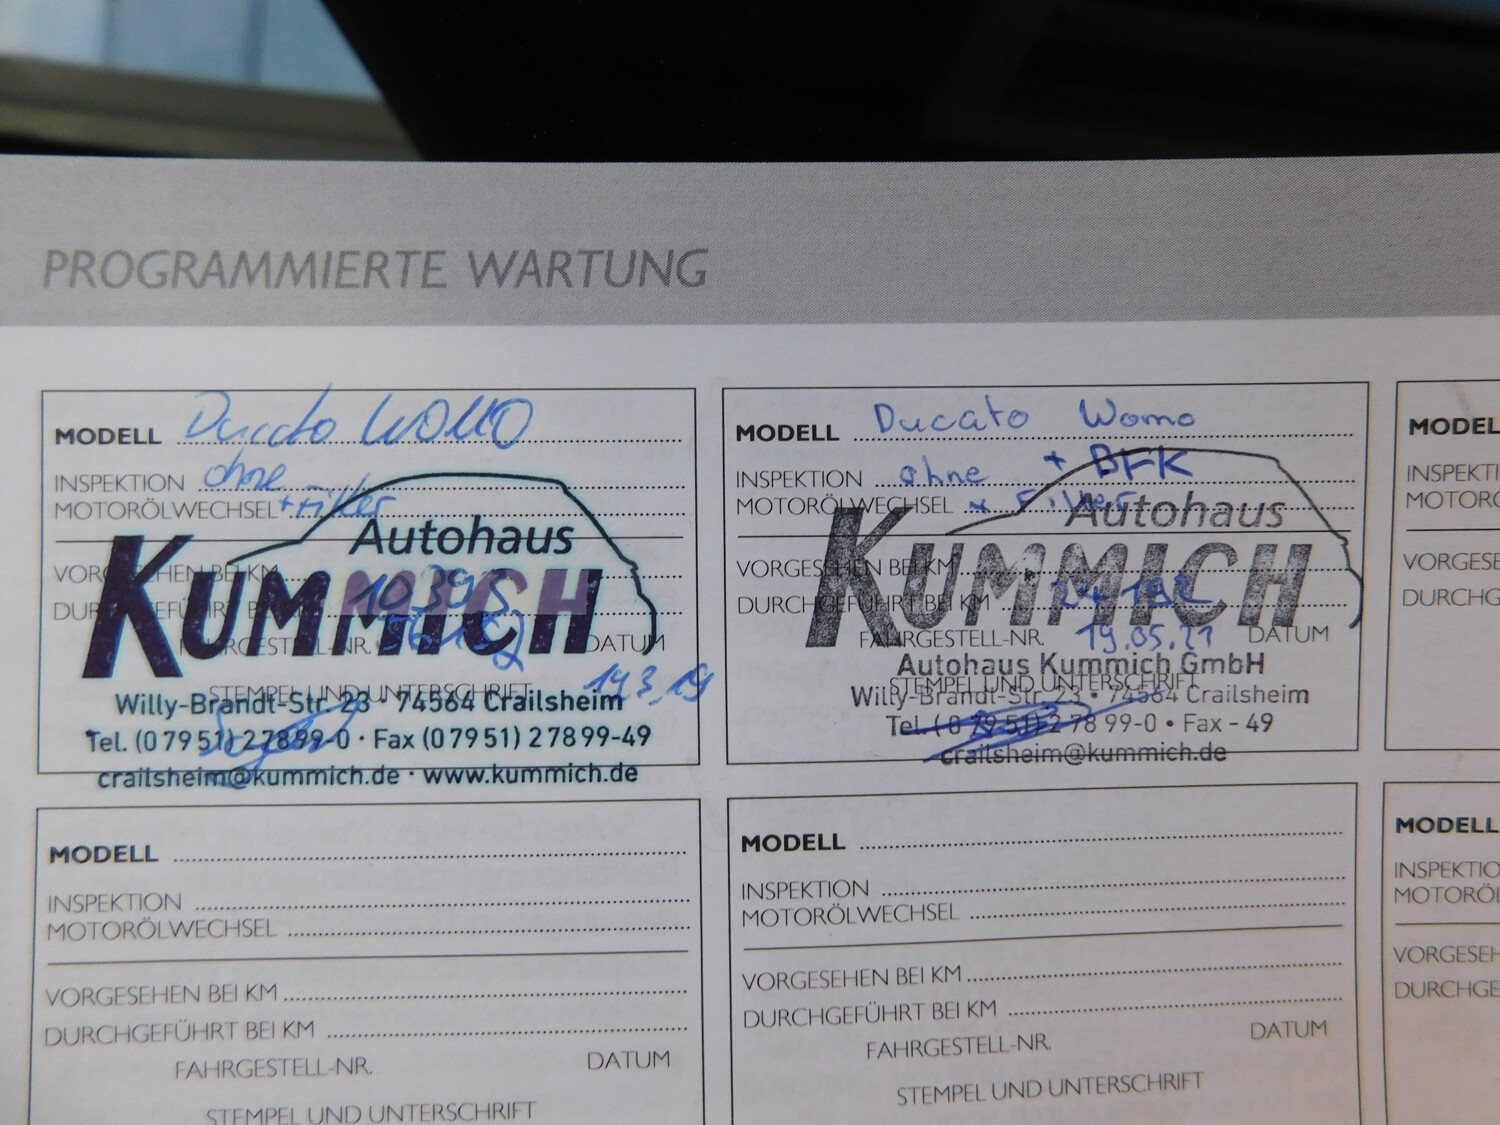 PROGRAMMIERTE WARTUNG
MODELL Ducato WOMO
INSPEKTION ohne
MOTORÖLWECHSEL + Filter
Autohaus
KUMMICH
VORGESEHEN BEI KM
DURCHGEFÜHRT BEI KM 10395
FAHRGESTELL-NR. DATUM
14.3.19
STEMPEL UND UNTERSCHRIFT
Willy-Brandt-Str. 23 · 74564 Crailsheim
Tel. (0 79 51) 2 78 99-0 · Fax (0 79 51) 2 78 99-49
crailsheim@kummich.de · www.kummich.de
MODELL Ducato Womo
INSPEKTION ohne + BFK
MOTORÖLWECHSEL + Filter
Autohaus
KUMMICH
VORGESEHEN BEI KM
DURCHGEFÜHRT BEI KM
FAHRGESTELL-NR. 19.05.21 DATUM
Autohaus Kummich GmbH
STEMPEL UND UNTERSCHRIFT
Willy-Brandt-Str. 23 • 74564 Crailsheim
Tel. (0 79 51) 2 78 99-0 • Fax - 49
crailsheim@kummich.de
MODELL
INSPEKTI
MOTORÖ
VORGESE
DURCHG
MODELL
INSPEKTION
MOTORÖLWECHSEL
VORGESEHEN BEI KM
DURCHGEFÜHRT BEI KM
FAHRGESTELL-NR. DATUM
STEMPEL UND UNTERSCHRIFT
MODELL
INSPEKTION
MOTORÖLWECHSEL
VORGESEHEN BEI KM
DURCHGEFÜHRT BEI KM
FAHRGESTELL-NR. DATUM
STEMPEL UND UNTERSCHRIFT
MODELL
INSPEKTIO
MOTORÖL
VORGESEH
DURCHGE